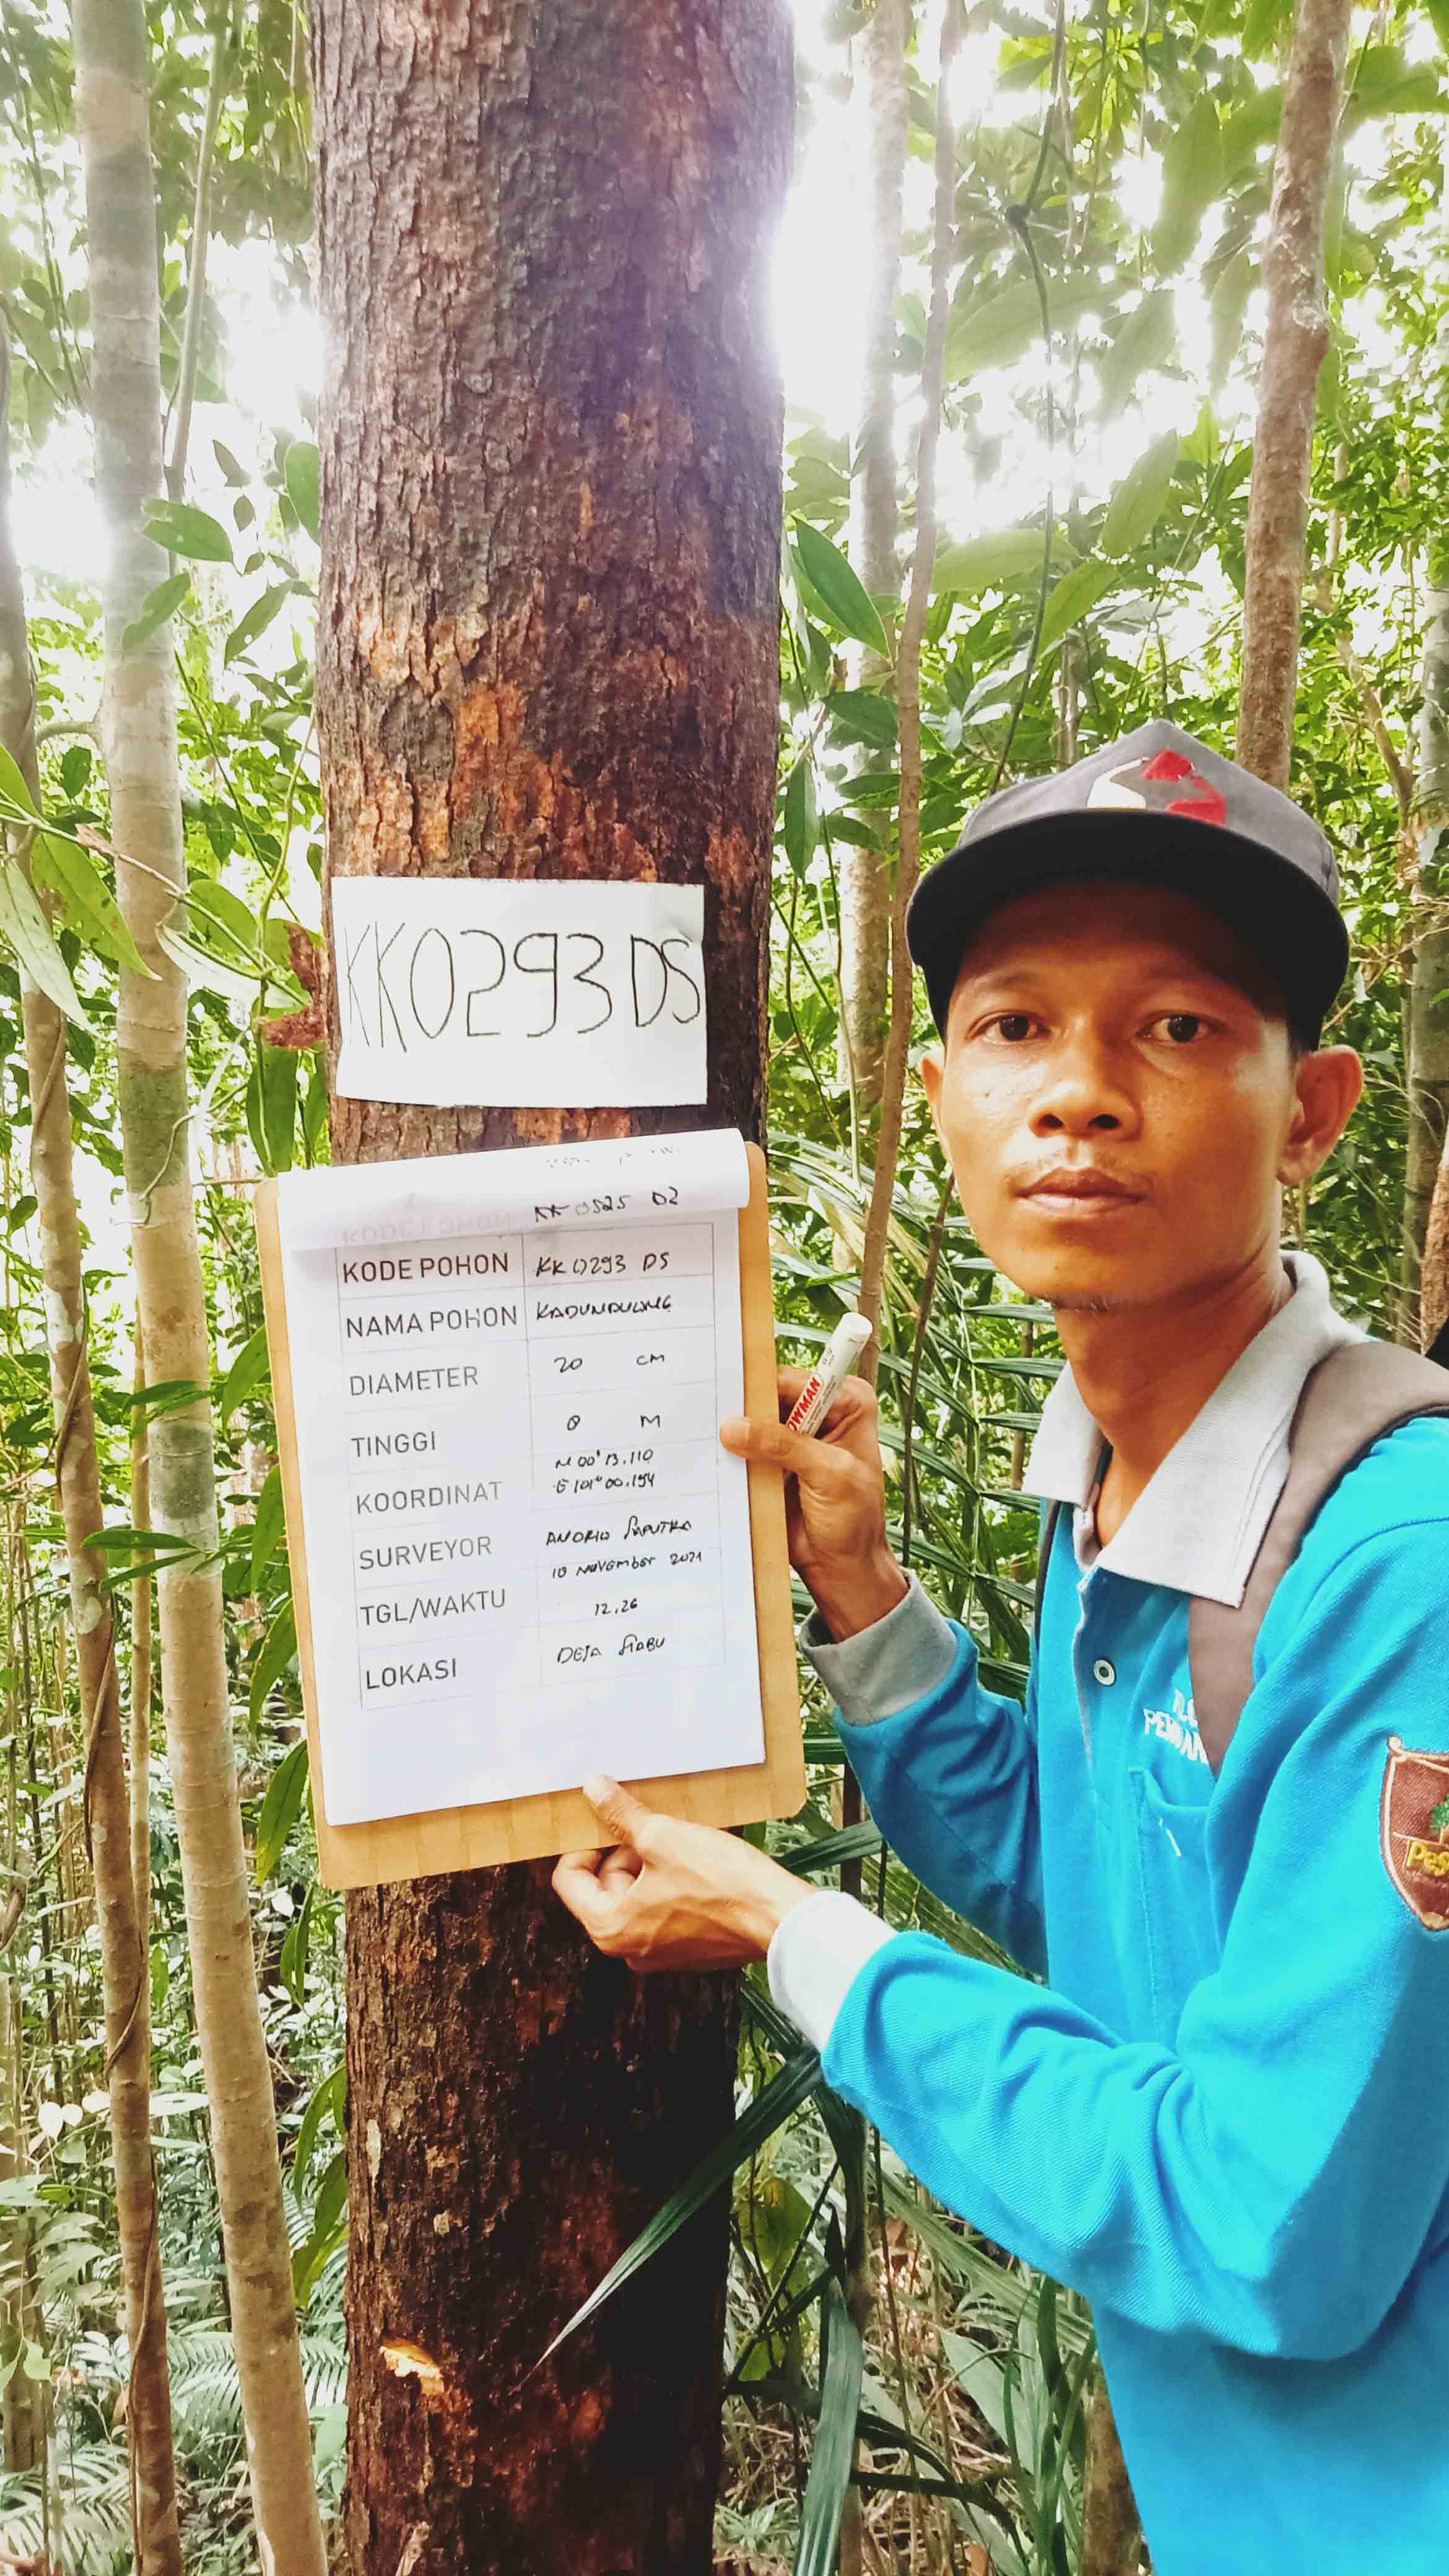 KK0293 DS
KK 0525 D2
KODE POHON KK 0293 DS
NAMA POHON KADUNDUNG
DIAMETER 20 CM
TINGGI 8 M
KOORDINAT N 00°13.110
E 101°00.154
SURVEYOR ANDRIO SAPUTRA
TGL/WAKTU 10 NOVEMBER 2021
12.26
LOKASI DESA SIABU
OWMAN